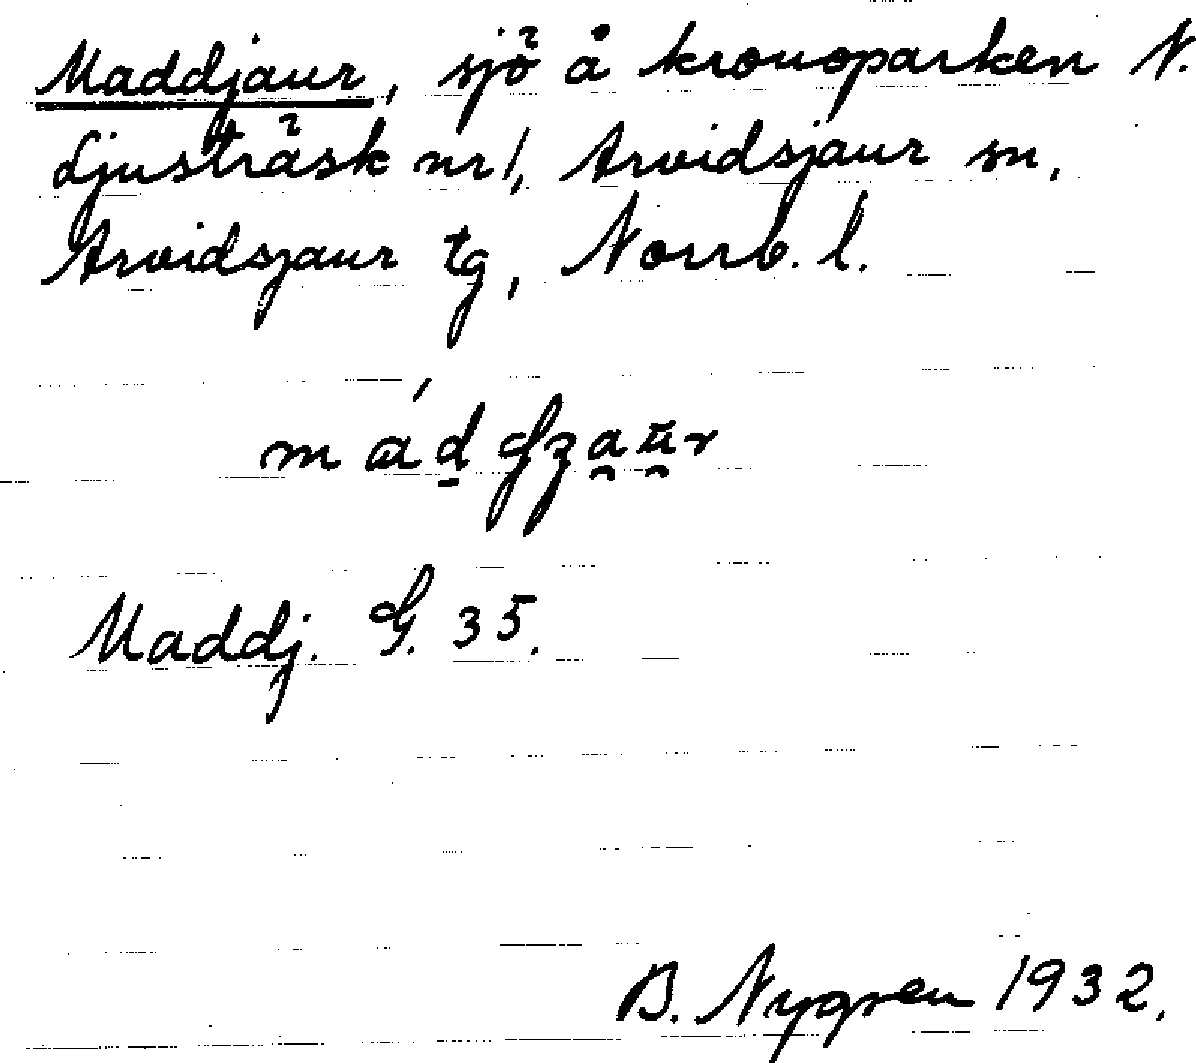 Maddjaur, sjö å kronoparken N.
Ljusträsk nr 1, Arvidsjaur sn,
Arvidsjaur tg, Norrb. l.
Maddj. G. 35.
B. Nygren 1932.